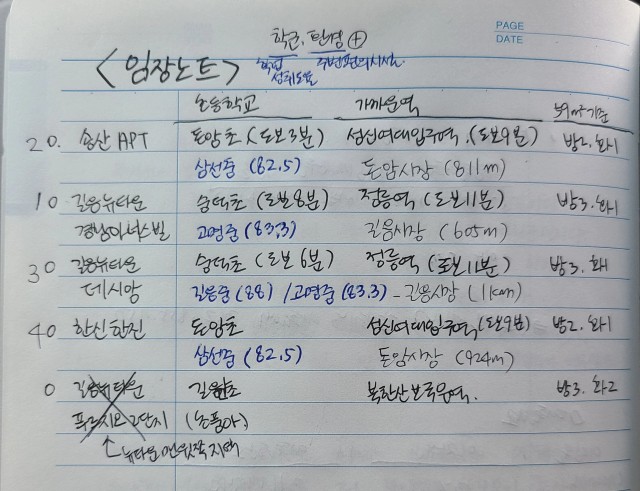 PAGE
DATE
학군, 탄경 ⊕
<임장노트> 학업성취도율 주변편의시설
초등학교 가까운역 59㎡기준
20. 송산 APT 돈암초 (도보3분) 성신여대입구역, (도보9분) 방2. 화1
삼선중 (82.5) 돈암시장 (811m)
10 길음뉴타운 숭덕초 (도보8분) 정릉역 (도보11분) 방3. 화1
경남아너스빌 고명중 (83.3) 길음시장 (605m)
30 길음뉴타운 숭덕초 (도보6분) 정릉역 (도보11분) 방3. 화1
데시앙 길음중 (88) / 고명중 (83.3) - 길음시장 (1km)
40 한신한진 돈암초 성신여대입구역 (도보9분) 방2. 화1
삼선중 (82.5) 돈암시장 (924m)
0 길음뉴타운 길원초 북한산보국문역. 방3. 화2
푸르지오 2단지 (초품아)
↑ 뉴타운 언덕쪽 지역